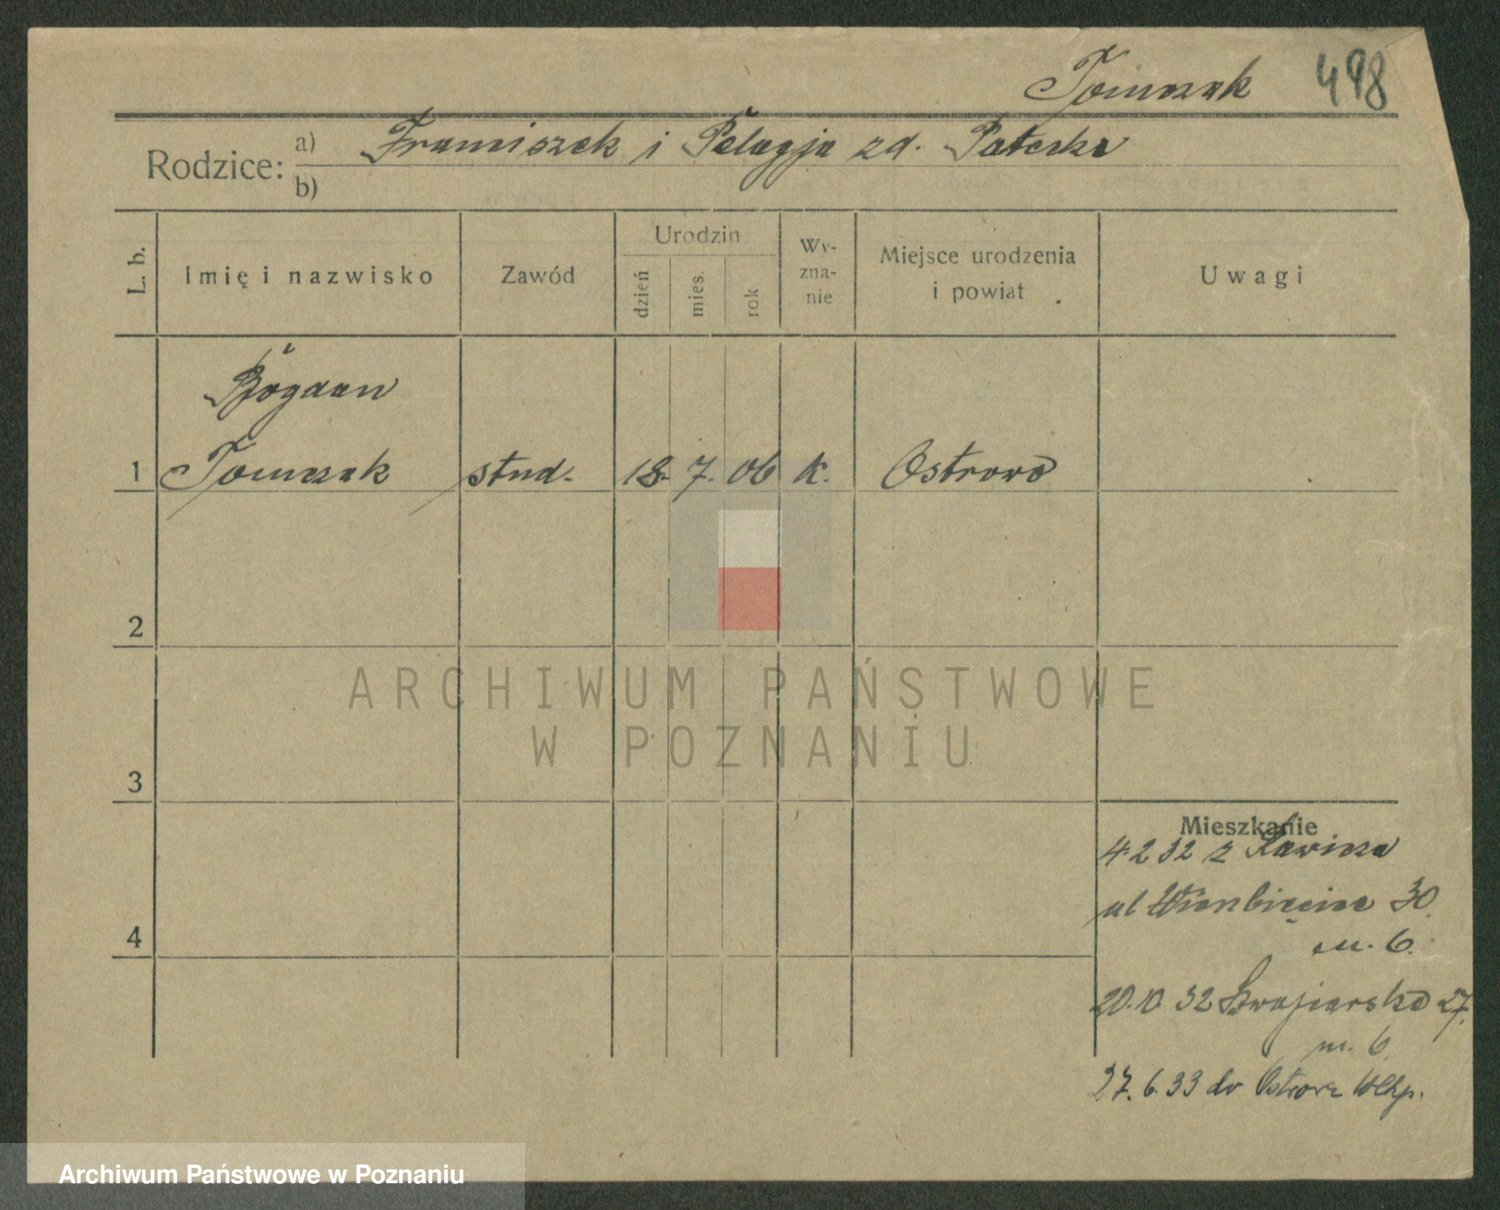 Tomczak 498
Rodzice: a) Franciszek i Pelagja zd. Paterka
b)
L. b. Imię i nazwisko Zawód Urodzin dzień mies. rok Wy-zna-nie Miejsce urodzenia i powiat Uwagi
Bogdan
1 Tomczak stud. 18. 7. 06 k. Ostrowo
2
ARCHIWUM PAŃSTWOWE
W POZNANIU
3
Mieszkanie
4 2 32 z Rawicza
ul Wierzbięcice 30
m. 6.
4
20.10 32 27.
m. 6
27. 6. 33 do Ostrowa Wlkp.
Archiwum Państwowe w Poznaniu